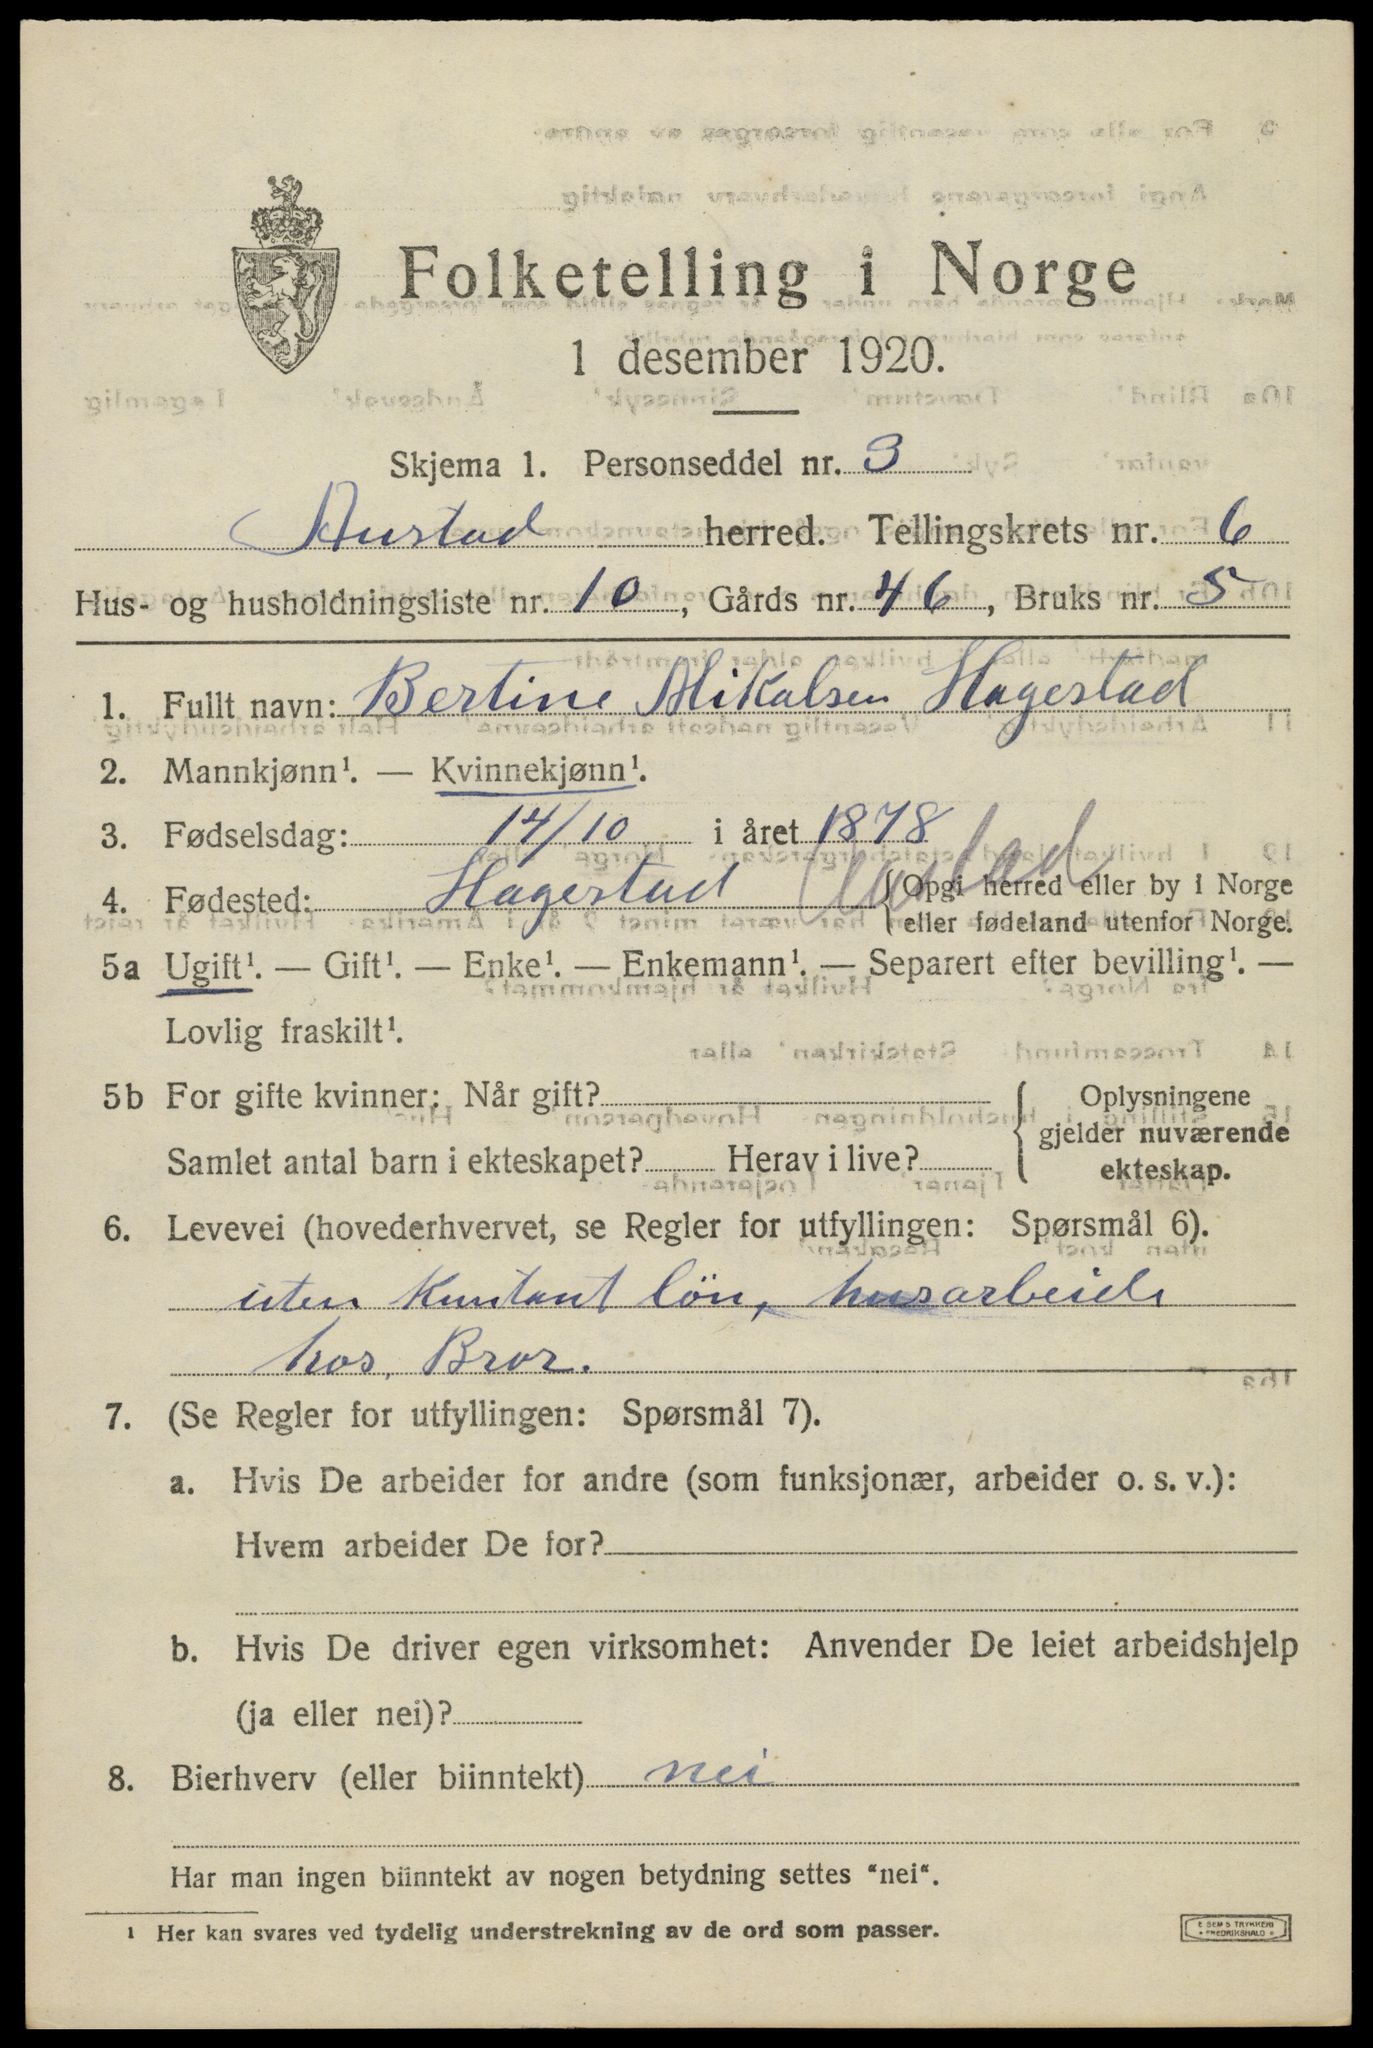 Folketelling i Norge
1 desember 1920.
Skjema 1. Personseddel nr. 3
Austad herred. Tellingskrets nr. 6
Hus- og husholdningsliste nr. 10, Gårds nr. 46, Bruks nr. 5
1. Fullt navn: Bertine Mikalsen Hagestad
2. Mannkjønn¹. — Kvinnekjønn¹.
3. Fødselsdag: 14/10 i året 1878
4. Fødested: Hagestad Austad {Opgi herred eller by i Norge
eller fødeland utenfor Norge.
5a Ugift¹. — Gift¹. — Enke¹. — Enkemann¹. — Separert efter bevilling¹. —
Lovlig fraskilt¹.
5b For gifte kvinner: Når gift?
Samlet antal barn i ekteskapet? Herav i live?
{Oplysningene
gjelder nuværende
ekteskap.
6. Levevei (hovederhvervet, se Regler for utfyllingen: Spørsmål 6).
uten Kuntant lön, husarbeide
hos, Bror.
7. (Se Regler for utfyllingen: Spørsmål 7).
a. Hvis De arbeider for andre (som funksjonær, arbeider o. s. v.):
Hvem arbeider De for?
b. Hvis De driver egen virksomhet: Anvender De leiet arbeidshjelp
(ja eller nei)?
8. Bierhverv (eller biinntekt) nei
Har man ingen biinntekt av nogen betydning settes "nei".
1 Her kan svares ved tydelig understrekning av de ord som passer.
E SEM S TRYKKERI
FREDRIKSHALD